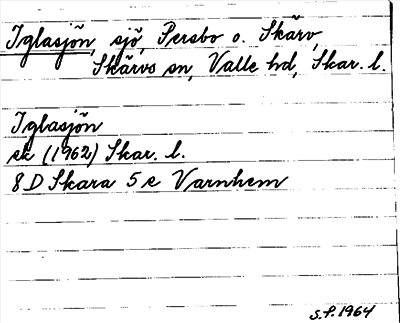 Iglasjön, sjö, Persbo o. Skärv,
Skärvs sn, Valle hd, Skar. l.
Iglasjön
ek (1962) Skar. l.
8 D Skara 5 e Varnhem
S.F. 1964